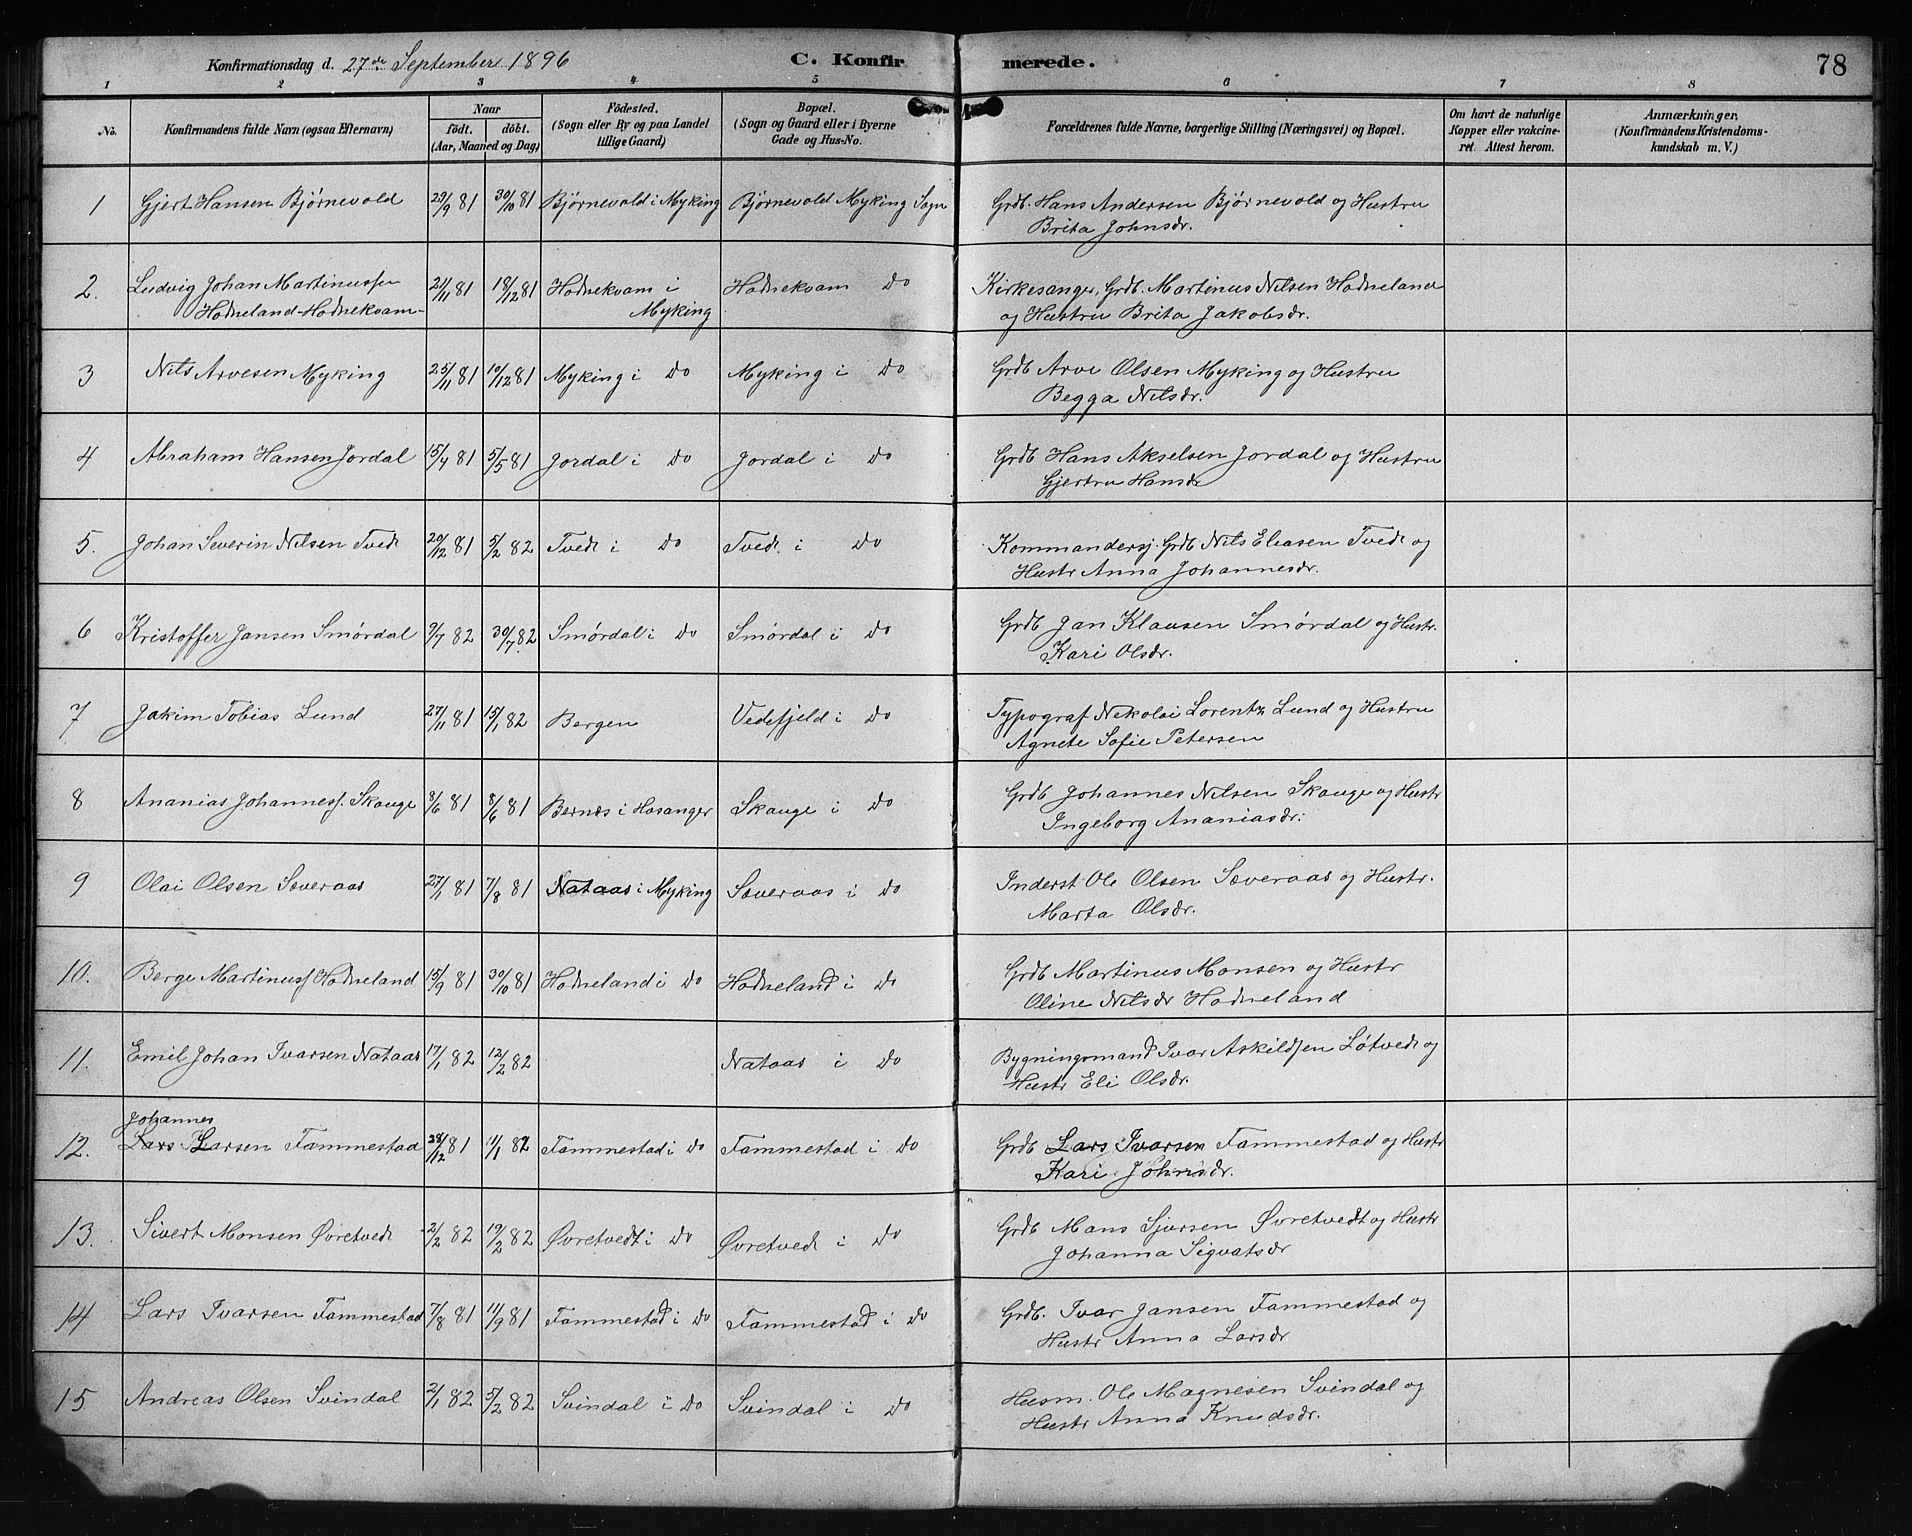 Konfirmationsdag d. 27de September 1896 C. Konfirmerede. 78
1 2 3 4 5 6 7 8
No. Konfirmandens fulde Navn (ogsaa Efternavn) Naar födt. döbt. (Aar, Maaned og Dag) Födested. (Sogn eller By og paa Landet tillige Gaard) Bopæl. (Sogn og Gaard eller i Byerne Gade og Hus-No. Forældrenes fulde Navne, borgerlige Stilling (Næringsvei) og Bopæl. Om havt de naturlige Kopper eller vakcineret. Attest herom. Anmærkninger. (Konfirmandens Kristendomskundskab m. V.)
1 Gjert Hansen Bjørnevold 29/9 81 30/10 81 Bjørnevold i Myking Bjørnevold Myking Sogn Grdb. Hans Andersen Bjørnevold og Hustru
Brita Johnsdr.
2. Ludvig Johan Martinussen 21/11 81 18/12 81 Hodnekvam i Hodnekvam Do Kirkesanger, Grdb. Martinus Nilsen Hodneland
Hodneland-Hodnekvam- Myking og Hustru Brita Jakobsdr.
3 Nils Arvesen Myking 25/11 81 10/12 81 Myking i Do Myking i Do Grdb Arve Olsen Myking og Hustru
Begga Nilsdr.
4 Abraham Hansen Jordal 15/4 81 5/5 81 Jordal i Do Jordal i Do Grdb Hans Akselsen Jordal og Hustru
Gjertru Hansdr
5. Johan Severin Nilsen Tvedt 20/12 81 5/2 82 Tvedt i Do Tvedt i Do Kommandersj. Grdb Nils Eliasen Tvedt og
Hustr Anna Johannesdr.
6 Kristoffer Jansen Smørdal 9/7 82 30/7 82 Smørdal i Do Smørdal i Do Grdb Jan Klausen Smørdal og Hustr.
Kari Olsdr.
7 Jakim Tobias Lund 27/11 81 15/1 82 Bergen Vedefjeld i Do Typograf Nekolai Lorentz Lund og Hustru
Agnete Sofie Petersen
8 Ananias Johanness. Skauge 3/6 81 8/6 81 Bernes i Hosanger Skauge i Do Grdb Johannes Nilsen Skauge og Hustr
Ingeborg Ananiasdr.
9 Olai Olsen Sæveraas 27/1 81 7/8 81 Nataas i Myking Sæveraas i Do Inderst Ole Olsen Sæveraas og Hustr.
Marta Olsdr.
10. Berge Martinuss Hodneland 15/9 81 30/10 81 Hodneland i Do Hodneland i Do Grdb Martinus Monsen og Hustr
Oline Nilsdr Hodneland
11. Emil Johan Ivarsen Nataas 17/1 82 12/2 82 Nataas i Do Bygningsmand Ivar Askildsen Løtvedt og
Hustr Eli Olsdr.
Johannes
12. Lars Larsen Fammestad 28/12 81 11/1 82 Fammestad i Do Fammestad i Do Grdb Lars Ivarsen Fammestad og Hustr
Kari Johnsdr.
13. Sivert Monsen Øvretvedt 2/2 82 19/2 82 Øvretvedt i Do Øvretvedt i Do Grdb Mons Sjursen Øvretvedt og Hustr
Johanna Sigvatsdr
14 Lars Ivarsen Fammestad 7/8 81 11/9 81 Fammestad i Do Fammestad i Do Grdb. Ivar Jansen Fammestad og
Hustr Anna Larsdr
15 Andreas Olsen Svindal 2/1 82 5/2 82 Svindal i Do Svindal i Do Husm. Ole Magnesen Svindal og
Hustr Anna Knudsdr.